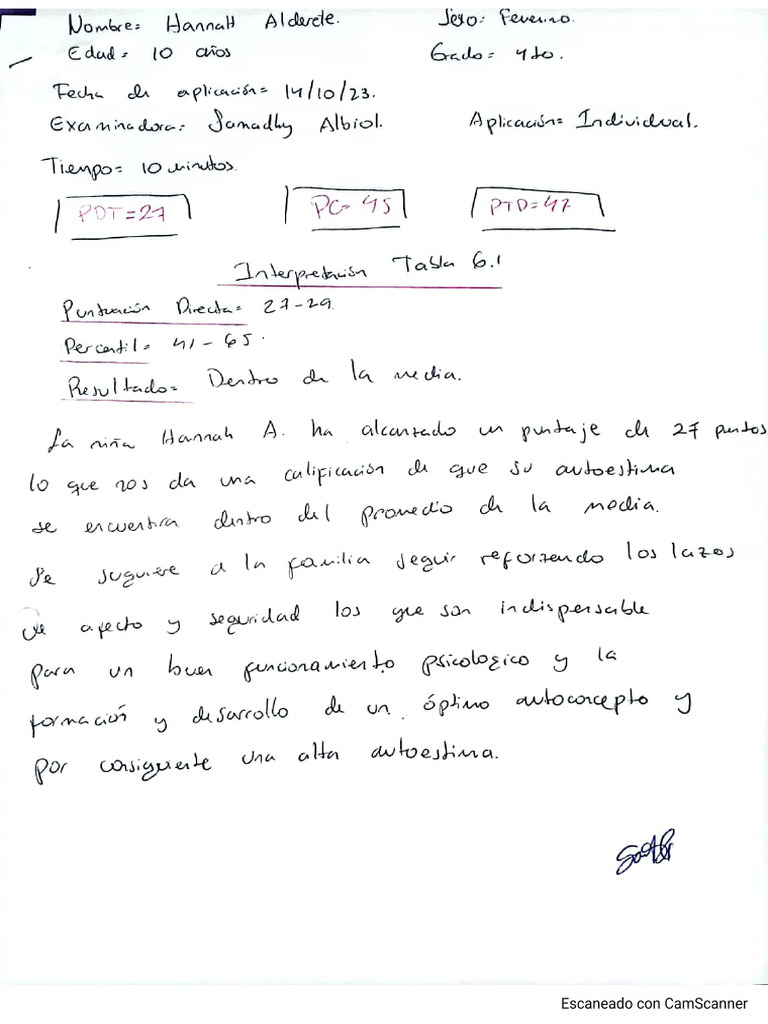 Nombre= Hannah Alderete. Sexo: Femenino.
Edad= 10 años Grado= 4to.
Fecha de aplicación= 14/10/23.
Examinadora= Samadhy Albiol. Aplicación= Individual.
Tiempo= 10 minutos.
PDT=27 PC=45 PTD=47
Interpretación Tabla 6.1
Puntuación Directa= 27-29.
Percentil= 41-65.
Resultado= Dentro de la media.
La niña Hannah A. ha alcanzado un puntaje de 27 puntos
lo que nos da una calificación de que su autoestima
se encuentra dentro del promedio de la media.
Se suguiere a la familia seguir reforzando los lazos
de afecto y seguridad los que son indispensable
para un buen funcionamiento psicologico y la
formación y desarrollo de un óptimo autoconcepto y
por consiguiente una alta autoestima.
Escaneado con CamScanner